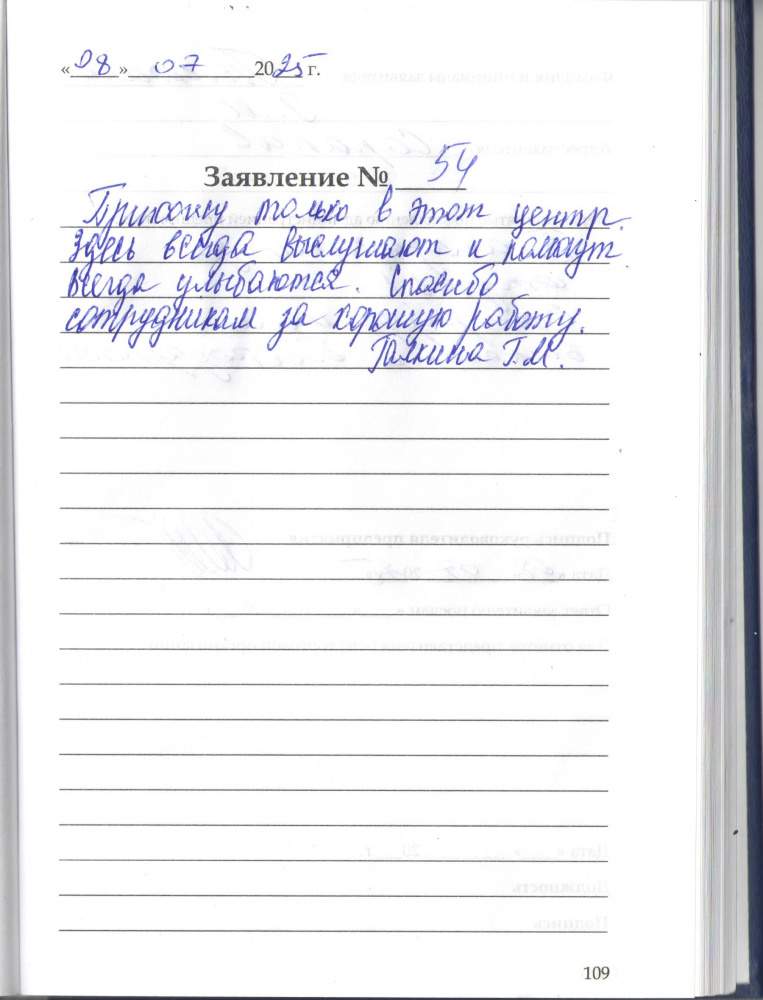 «08» 07 2025 г.
Заявление № 54
Прихожу только в этот центр.
Здесь всегда выслушают и помогут
всегда улыбаются. Спасибо
сотрудникам за хорошую работу.
Галкина Г.М.
109